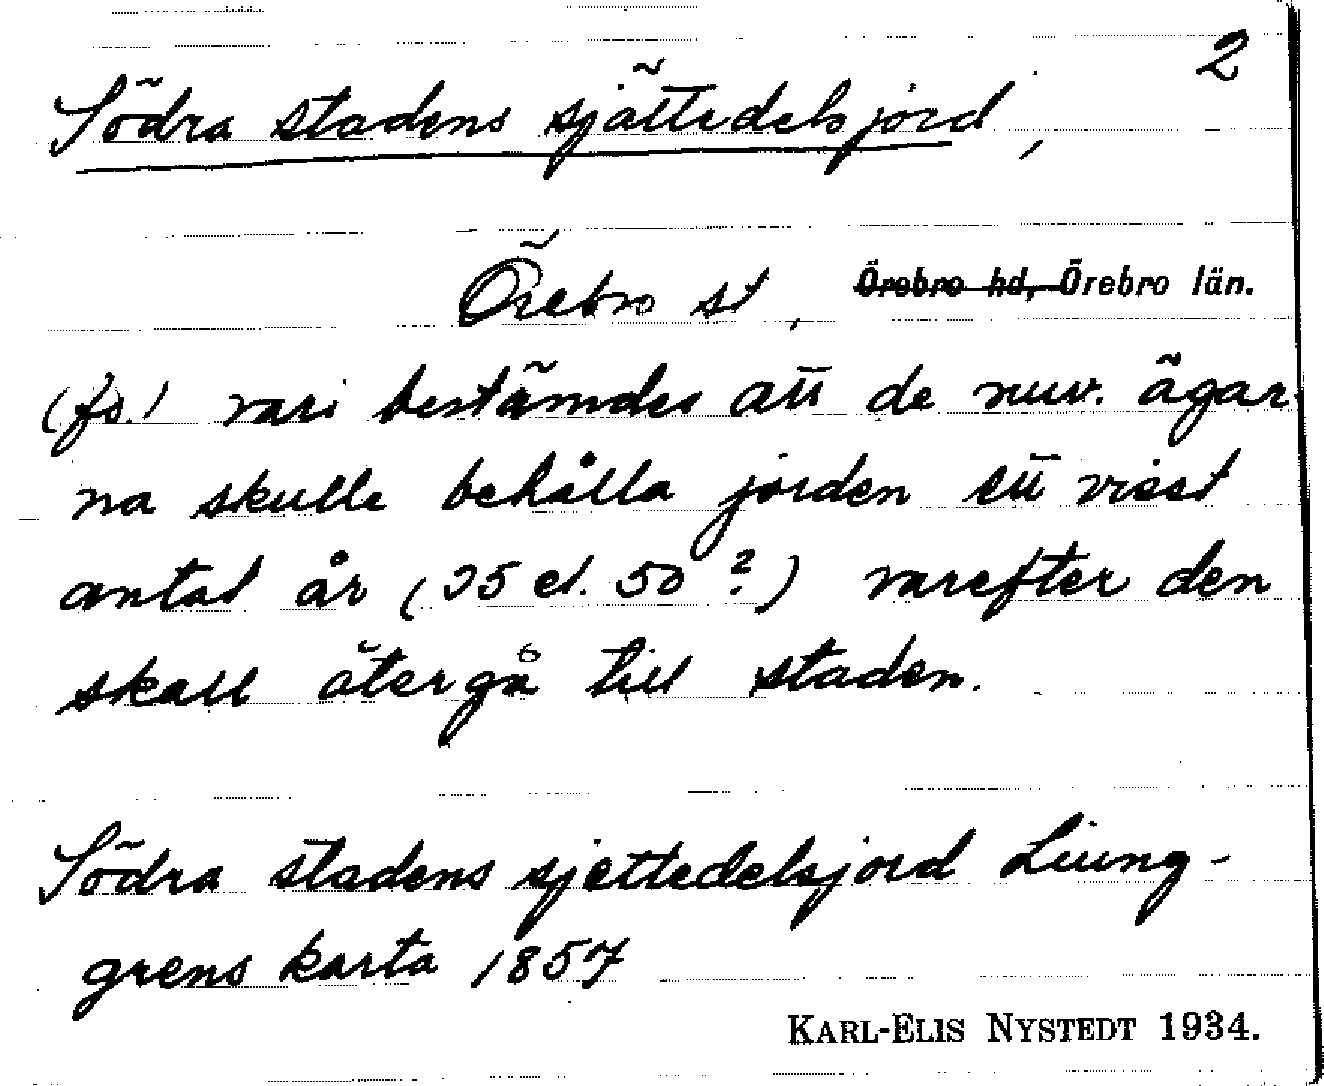 2
Södra stadens sjättedelsjord,
Örebro st, Örebro hd, Örebro län.
(fs.) vari bestämdes att de nuv. ägar-
na skulle behålla jorden ett visst
antal år (25 el. 50 ?) varefter den
skall återgå till staden.
Södra stadens sjettedelsjord Liung-
grens karta 1857
KARL-ELIS NYSTEDT 1934.